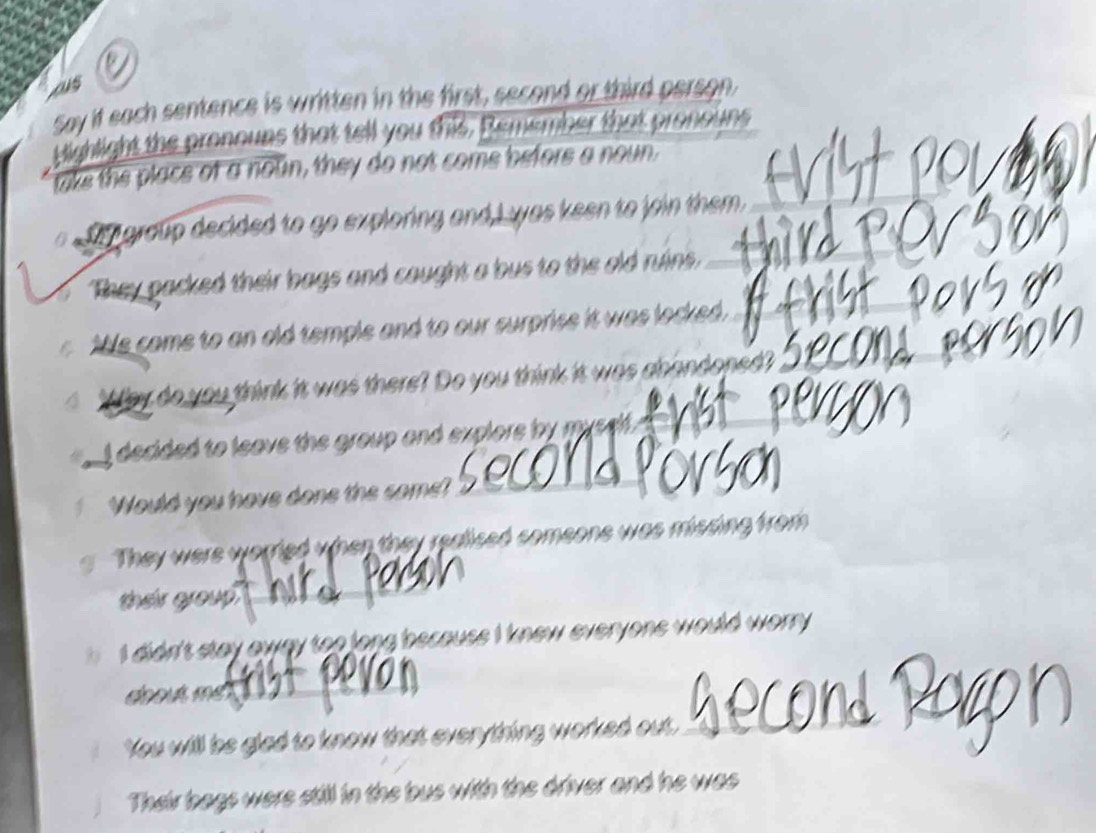 Say if each sentence is written in the first, second or third person.
Highlight the pronouns that tell you this. Remember that pronouns
take the place of a noun, they do not come before a noun.
a My group decided to go exploring and I was keen to join them. frist
They packed their bags and caught a bus to the old ruins. third person
c We came to an old temple and to our surprise it was locked. frist pors on
d Why do you think it was there? Do you think it was abandoned? Second person
I decided to leave the group and explore by myself. frist person
f Would you have done the same? Second Porson
g They were worried when they realised someone was missing from
their group. third Porson
h I didn't stay away too long because I knew everyone would worry
about me. frist peron
i You will be glad to know that everything worked out. Second
j Their bags were still in the bus with the driver and he was